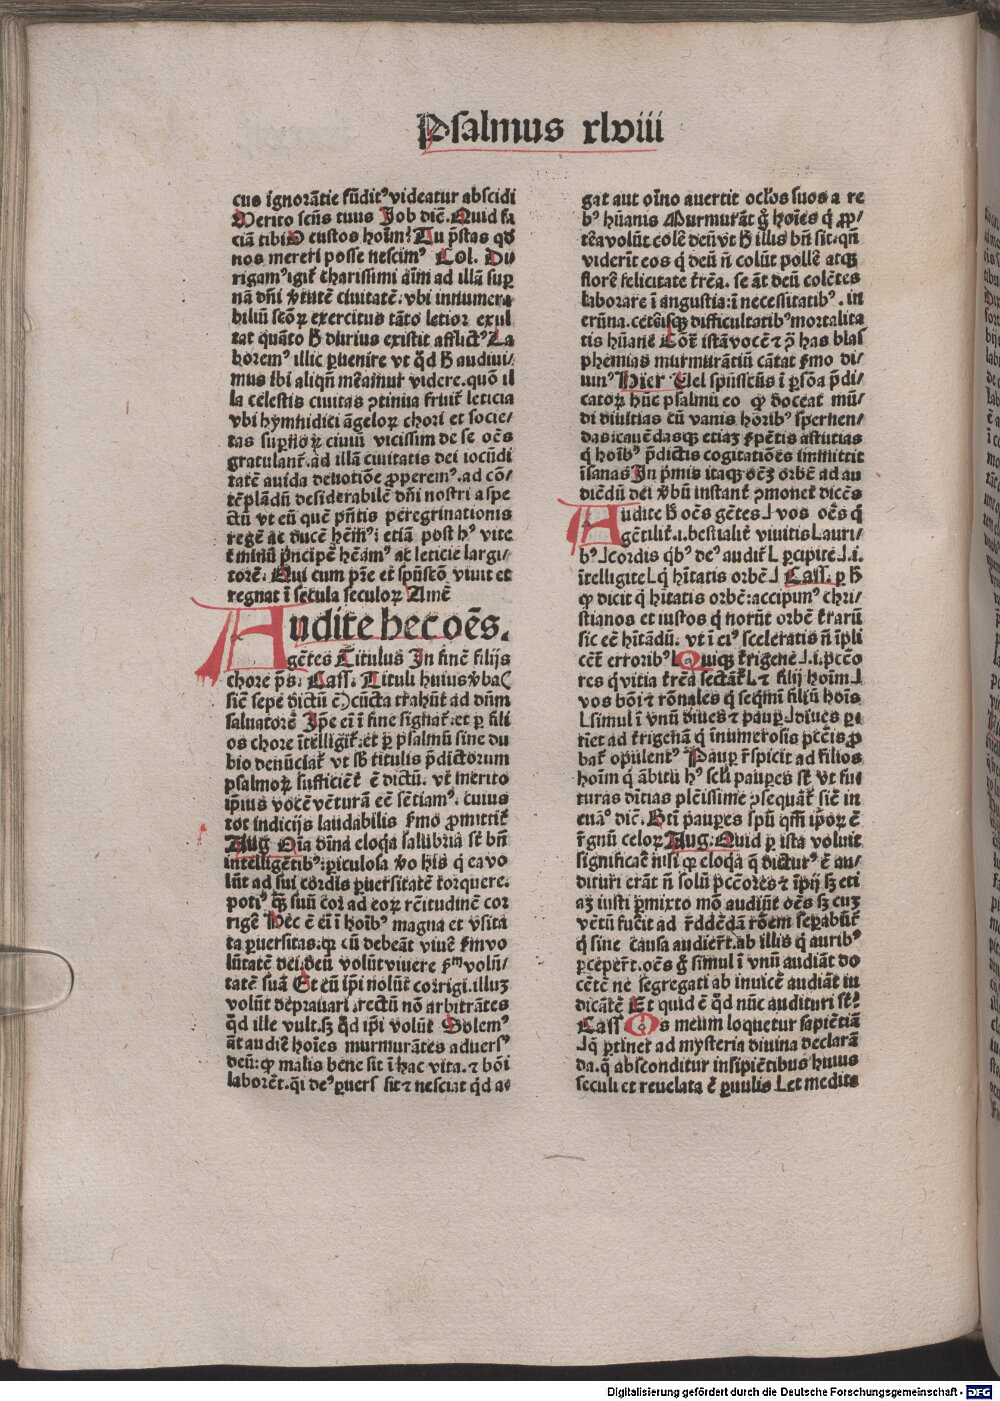 Psalmus xlviii
cus ignorãtie fũdit⁹ videatur abscidi
Merito scũs tuus Job dic̃. Quid fa
ciã tibi O custos hoĩm? Tu p̃stas qđ
nos mereri posse nescim⁹ Col. Du
rigam⁹ igit̃ charissimi aĩm ad illã sup̱
nã dñi v̓tutẽ ciuitatẽ: vbi innumera
biliũ scõꝝ exercitus tãto letior exul
tat quãto ħ durius existit afflict⁹ La
borem⁹ illic ꝑuenire vt qđ ħ audiui/
mus ibi aliqñ meãmur̃ videre. quõ il
la celestis ciuitas ꝯtinua fruit̃ leticia
vbi hymnidici ãgeloꝝ chori et socie/
tas sup̱noꝝ ciuiũ vicissim de se oẽs
gratulant̃. ad illã ciuitatis dei iocũdi
tatẽ auida deuotiõe ꝓperem⁹. ad cõ/
tẽplãdũ desiderabilẽ dñi nostri aspe
ctũ vt eũ quẽ p̃ntis peregrinationis
regẽ ac ducẽ hẽm⁹: etiã post h⁹ vite
t̃minũ p̃ncipẽ hẽam⁹ ac leticie largi/
torẽ. Qui cum pr̃e et sp̃uscõ viuit et
regnat ĩ secula seculoꝝ Amẽ
Audite hec oẽs.
gẽtes Titulus In finẽ filijs
chore p̃s. Cass. Tituli huius v̓ba
sic̃ sepe dictũ ẽ cũcta trahũt̃ ad dñm
saluatorẽ Ip̃e eĩ ĩ fine signat̃. et ꝑ fili
os chore ĩtelligit̃. et ꝑ psalmũ sine du
bio denũciat̃ vt sb̃ titulis p̃dictorum
psalmoꝝ sufficiẽt̃ ẽ dictũ. vt̃ merito
ip̃ius vocẽ vẽturã eẽ sẽtiam⁹. cuius
tot indicijs laudabilis f̃mo ꝓmittit̃
Aug Oĩa diuĩa eloq̃a salubria st̃ bñ
intelligẽtib⁹: ꝑiculosa v̓o his q̃ ea vo
lũt ad sui cordis ꝑuersitatẽ torquere.
poti⁹ q̃ꝫ suũ cor ad eoꝝ rc̃itudinẽ cor
rigẽ Hec ẽ eĩ ĩ hoĩb⁹ magna et vsita
ta ꝑuersitas. qꝫ cũ debeãt viuẽ s̃m vo
lũtatẽ dei. deũ volũt viuere s̃m volũ/
tatẽ suã Et cũ ip̃i nolũt corrigi. illuꝫ
volũt deprauari. rectũ nõ arbitrãtes
qđ ille vult. sꝫ qđ ip̃i volũt Solem⁹
aũt audiẽ hoĩes murmurãtes aduers⁹
deũ: ꝙ malis bene sit ĩ hac vita. ⁊ bõi
laborẽt. qꝛ de⁹ ꝑuers⁹ sit ⁊ nesciat qđ a/
gat aut oĩno auertit oc̃los suos a re
b⁹ hũanis Murmurãt g̃ hoĩes q̃ ꝓp/
tea volũt colẽ deũ vt ħ illis bñ sit. qñ
viderĩt eos q̃ deũ ñ colũt pollẽ atqꝫ
florẽ felicitate t̃rẽa. se aũt deũ colẽtes
laborare ĩ angustia: ĩ necessitatib⁹. in
erũna. cet̃isqꝫ difficultatib⁹ mortalita
tis hũane Cõtra istã vocẽ ⁊ ꝓ has blas
phemias murmurãtiũ cãtat f̃mo di/
uin⁹ Hier Vel sp̃usscũs ĩ ꝑsõa p̃di/
catoꝝ hũc psalmũ eo ꝙ doceat mũ/
di diuitias cũ vanis hõrib⁹ spernen/
das: cauẽdasqꝫ etiaꝫ f̃pẽtis astutias
q̃ hoĩb⁹ p̃dictis cogitatiões immittit
ĩsanas In p̃mis itaqꝫ oẽꝫ orbẽ ad au
diẽdũ dei v̓bũ instant̃ ꝯmonet dicẽs
Audite ħ oẽs gẽtes ⅃ vos oẽs q̃
gẽtilit̃ .i. bestialit̃ viuitis L auri/
b⁹ ⅃ cordis qb⁹ de⁹ audit̃ L ꝑcipite ⅃ .i.
ĩtelligite L q̃ hĩtatis orbẽ ⅃ Cass. ꝑ ħ
ꝙ dicit q̃ hĩtatis orbẽ: accipim⁹ chri/
stianos et iustos q̃ norũt orbẽ t̃rarũ
sic eẽ hĩtãdũ. vt ĩ ei⁹ sceleratis ñ ĩpli
cẽt̃ errorib⁹ L Quiqꝫ t̃rigene ⅃ .i. pc̃cõ
res q̃ vitia t̃rẽa sectãt̃ L ⁊ filij hoĩm ⅃
vos bõi ⁊ rõnales q̃ seq̃mĩ filiũ hoĩs
L simul ĩ vnũ diues ⁊ pauꝑ ⅃ diues ꝑ
tiet ad t̃rigenã q̃ ĩnumerosis pc̃tis ꝓ
bat̃ opulent⁹ Pauꝑ r̃spicit ad filios
hoĩm q̃ ãbitũ h⁹ sc̃li pauꝑes st̃ vt fu
turas diuĩtias plẽissime ꝯsequãt̃ sic̃ in
euã⁹ dic̃. Bti pauꝑes sp̃u qm̃ ip̃oꝝ ẽ
r̃gnũ celoꝝ Aug: Quid ꝑ ista voluit
significaẽ nisi ꝙ eloq̃a q̃ dictur⁹ ẽ au/
dituri erãt ñ solũ pc̃cõres ⁊ ĩpij sꝫ eti
aꝫ iusti ꝑmixto mõ audiũt̃ oẽs sꝫ cuꝫ
vẽtũ fuẽit ad r̃ddẽdã rõem sepabũt̃
q̃ sine causa audier̃t. ab illis q̃ aurib⁹
ꝑceper̃t. oẽs g̃ simul ĩ vnũ audiãt do
cẽtẽ ne segregati ab inuicẽ audiãt iu
dicãtẽ Et quid ẽ qđ nũc audituri st̃?
Cass Os meum loquetur sapiẽtiã
⅃ q̃ ꝑtinet ad mysteria diuina declarã
da. q̃ absconditur insipiẽtibus huius
seculi et reuelata ẽ ꝑuulis L et medita
Digitalisierung gefördert durch die Deutsche Forschungsgemeinschaft - DFG